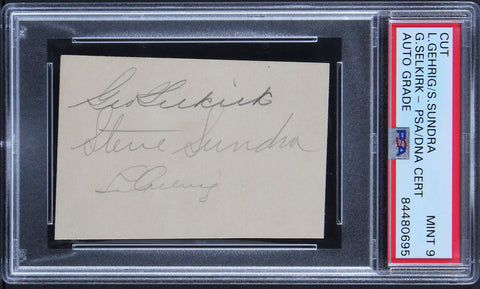 Geo Selkirk
Steve Sundra
L Gehrig
CUT
L.GEHRIG/S.SUNDRA
G.SELKIRK – PSA/DNA CERT
AUTO GRADE
MINT 9
PSA
84480695